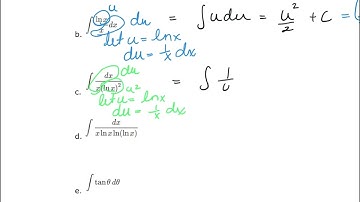 u
b. ∫ (ln x)/x dx du = ∫ u du = u²/2 + C =
let u = ln x
du = 1/x dx
c. ∫ dx/(x(ln x)²) du = ∫ 1/u
u²
let u = ln x
du = 1/x dx
d. ∫ dx/(x ln x ln(ln x))
e. ∫ tan θ dθ